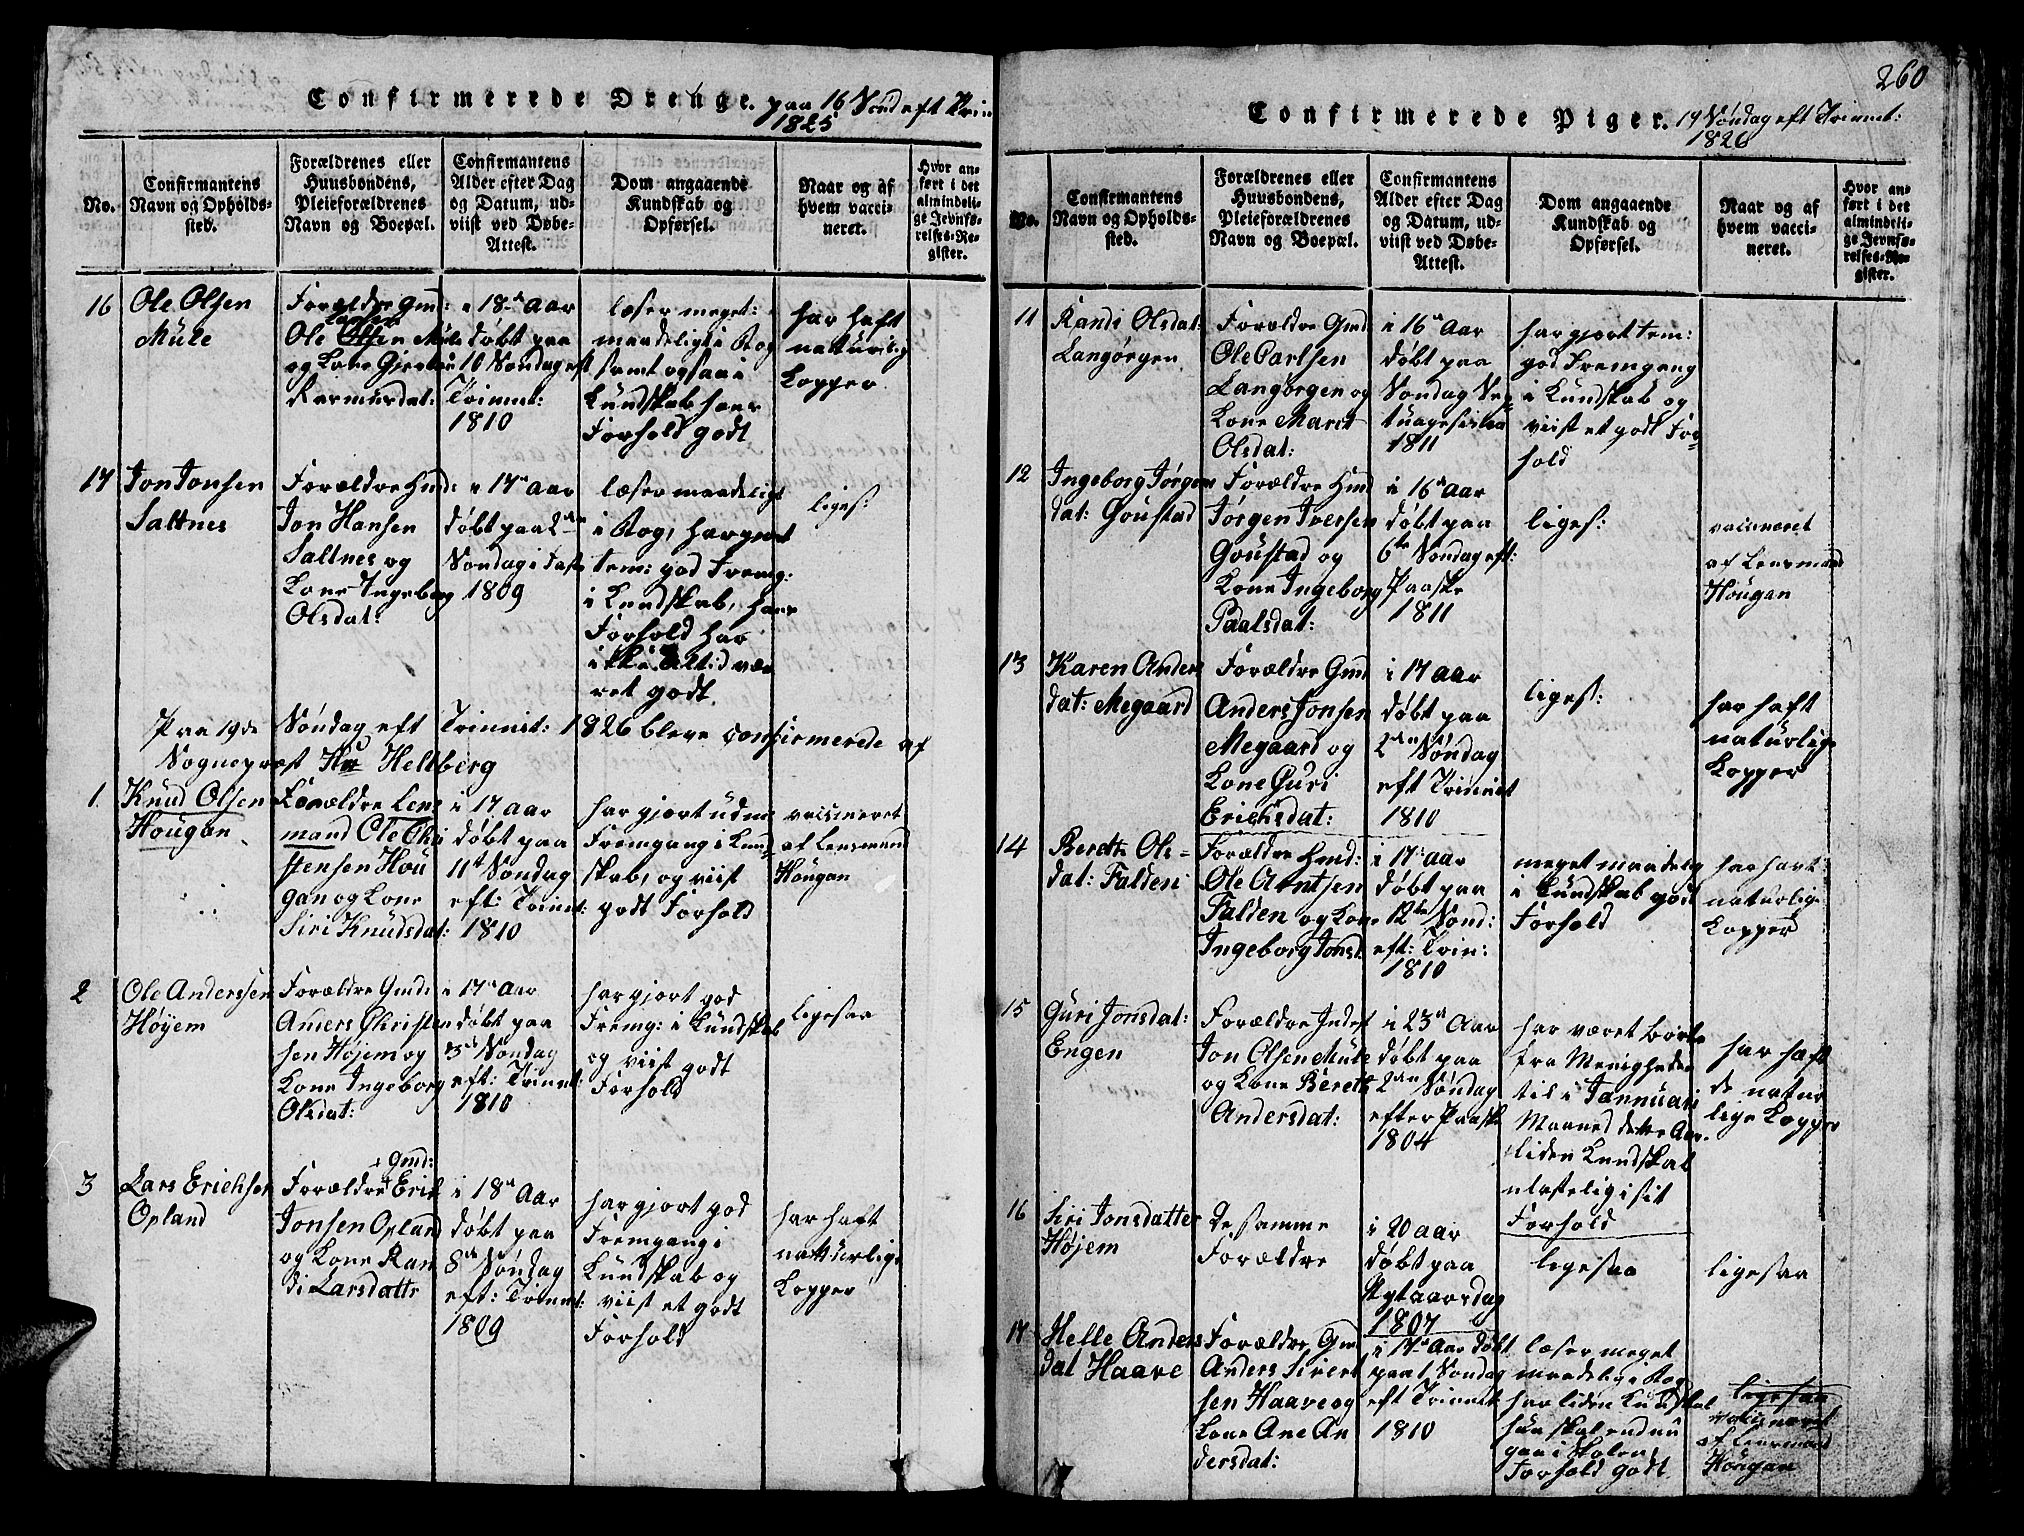 Confirmerede Drenge. paa 16 Sønd eft Trin
1825
No.
Confirmantens
Navn og Opholds-
sted.
Forældrenes eller
Huusbondens,
Pleieforældrenes
Navn og Boepæl.
Confirmantens
Alder efter Dag
og Datum, ud-
viist ved Døbe-
Attest.
Dom angaaende
Kundskab og
Opførsel.
Naar og af
hvem vacci-
neret.
Hvor an-
ført i det
almindeli-
ge Jevnfø-
relses-Re-
gister.
16
Ole Olsen
Mule
Forældre Gmd:
Ole Olsen Mule
og Kone
Rasmusdat:
i 18de Aar
døbt paa
16 Søndag eft
Trinnt:
1810
læser meget:
maadeligt i Bog
samt ogsaa i
Kundskab hans
Forhold godt
har haft
naturlig
Kopper
17
Jon Jonsen
Saltnes
Forældre Hmd:
Jon Hansen
Saltnes og
Kone Ingeborg
Olsdat:
i 17de Aar
døbt paa 2den
Søndag i Faste
1809
læser maadeligt
i Bog, har gjort
tem: god Fremg:
i Kundskab, hans
Forhold har
ikke altid væ-
ret godt.
liges:
Paa 19de Søndag eft Trinnit: 1826 bleve confirmerede af
Sognepræst Hr Hellberg
1.
Knud Olsen
Hougan
Forældre Lens
mand Ole Chri
stensen Hou
gan og Kone
Siri Knudsdat:
i 17 Aar
døbt paa
11te Søndag
eft: Trinnt:
1810
har gjort udm
Fremgang i Kund-
skab, og viist
godt Forhold
vaccineret
af Lensmand
Hougan
2
Ole Anderssen
Høyem
Forældre Gmd:
Anders Christen
sen Højem og
Kone Ingeborg
Olsdat:
i 17de Aar
døbt paa
3de Søndag
eft: Trinnt:
1810
har gjort god
Fremg: i Kundskab
og viist godt
Forhold
ligesaa
3
Lars Erichsen
Opland
Gmd:
Forældre Erik
Jonsen Opland
og Kone Ran
di Larsdattr
i 18de Aar
døbt paa
8de Søndag
eft: Trinnt:
1809
har gjort god
Fremgang i
Kundskab og
viist et godt
Forhold
har haft
naturlige
Kopper
260
Confirmerede Piger. 19 Søndag eft Trinnt:
1826
No.
Confirmantens
Navn og Opholds-
sted.
Forældrenes eller
Huusbondens,
Pleieforældrenes
Navn og Boepæl.
Confirmantens
Alder efter Dag
og Datum, ud-
viist ved Døbe-
Attest.
Dom angaaende
Kundskab og
Opførsel.
Naar og af
hvem vacci-
neret.
Hvor an-
ført i det
almindeli-
ge Jevnfø-
relses-Re-
gister.
11
Randi Olsdat:
Langørgen
Forældre Gmd
Ole Carlsen
Langørgen og
Kone Marit
Olsdat:
i 16de Aar
døbt paa
Søndag Sep-
tuagesima
1811
har gjort tem:
god Fremgang
i Kundskab og
viist et godt For-
hold
12
Ingeborg Jørgens
dat: Goustad
Forældre Hmd
Jørgen Iversen
Goustad og
Kone Ingeborg
Paalsdat:
i 16de Aar
døbt paa
6te Søndag eft:
Paaske
1811
liges:
vaccineret
af Lensmand
Hougan
13
Karen Anders
dat: Megaard
Forældre Gmd
Anders Jonsen
Megaard og
Kone Guri
Erichsdat:
i 17 Aar
døbt paa
2den Søndag
eft Trinnit
1810
liges:
har haft
naturlige
Kopper
14
Bereth Ols-
dat: Falden
Forældre Hmd:
Ole Arntsen
Falden og Kone
Ingeborg Jonsd.
i 17de Aar
døbt paa
12te Sønd:
eft: Trin:
1810
meget maadelig
i Kundskab godt
Forhold
har havt
naturlige
Kopper
15
Guri Jonsdat:
Engen
Forældre Inderst
Jon Olsen Mule
og Kone Bereth
Andersdat:
i 23de Aar
døbt paa
2den Søndag
efter Paaske
1804
har været borte
fra Menigheden
til i Jannuari
Maaned dette Aar
liden Kundskab
ulastelig i sit
Forhold
har haft
de natur
lige Kopper
16
Siri Jonsdatter
Højem
de samme
Forældre
i 20 Aar
døbt paa
Nytaarsdag
1807
ligesaa
ligesaa
17
Helle Anders
dat Haave
Forældre Gmd
Anders Sivert
sen Haave og
Kone Ane An
dersdat:
i 17de Aar døbt
paa 1 Søndag
eft Trinnit
1810
læser meget
maadelig i Bog
har liden Kundskab
hun skal endnu
gaa i Skolen,
Forhold godt.
ligesaa
vaccineret
af Lensmand
Hougan